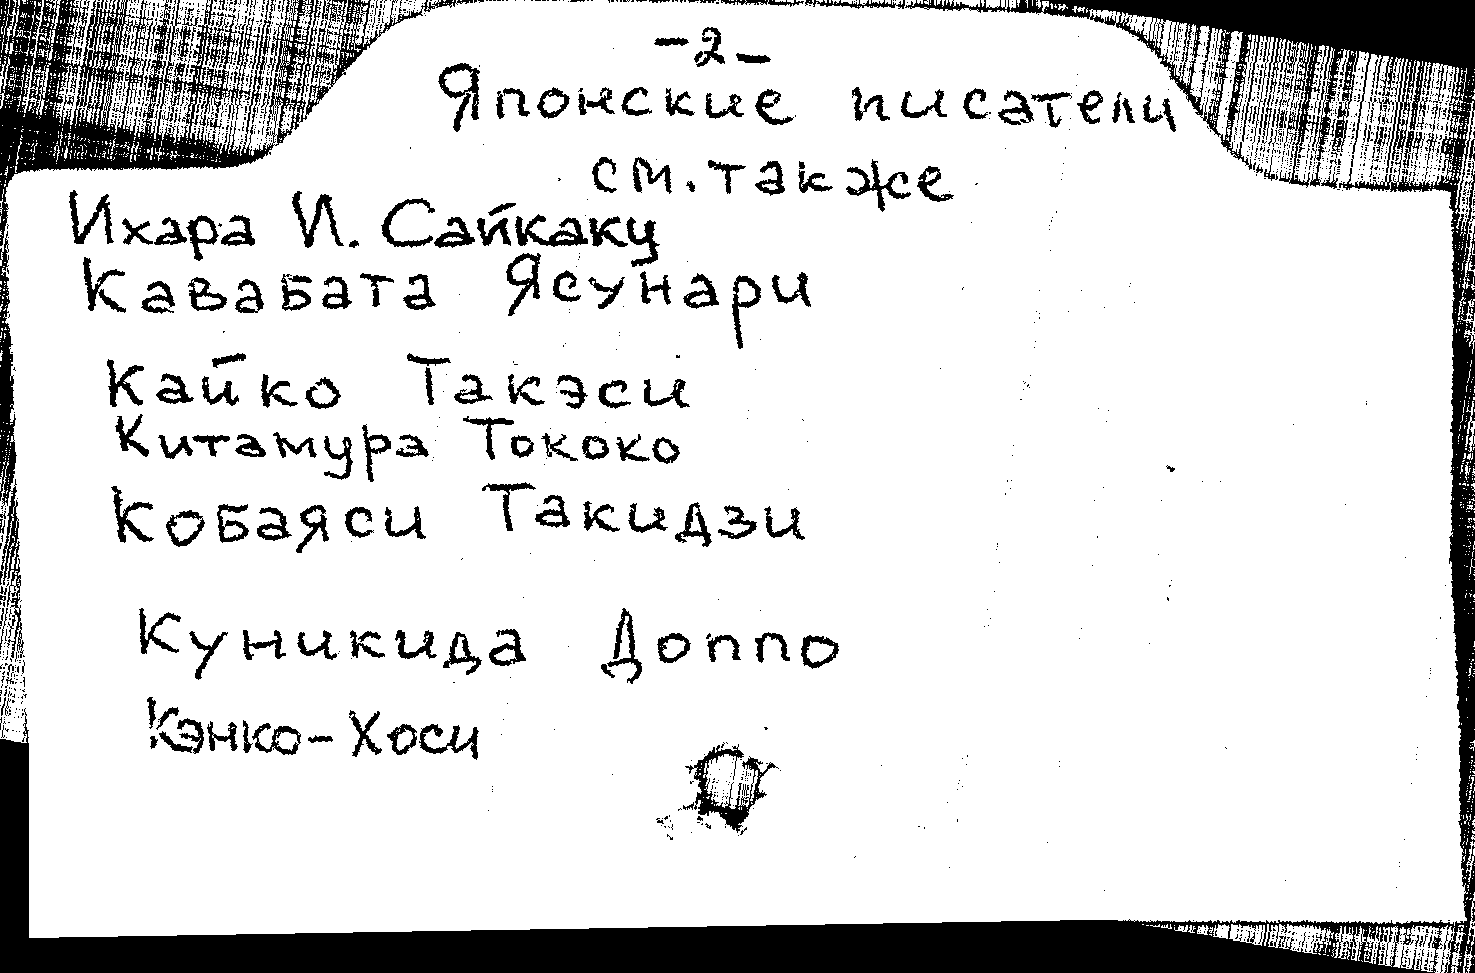 -2-
Японские писатели
см. также
Ихара И. Сайкаку
Кавабата Ясунари
Кайко Такэси
Китамура Тококо
Кобаяси Такидзи
Куникида Доппо
Кэнко-Хоси